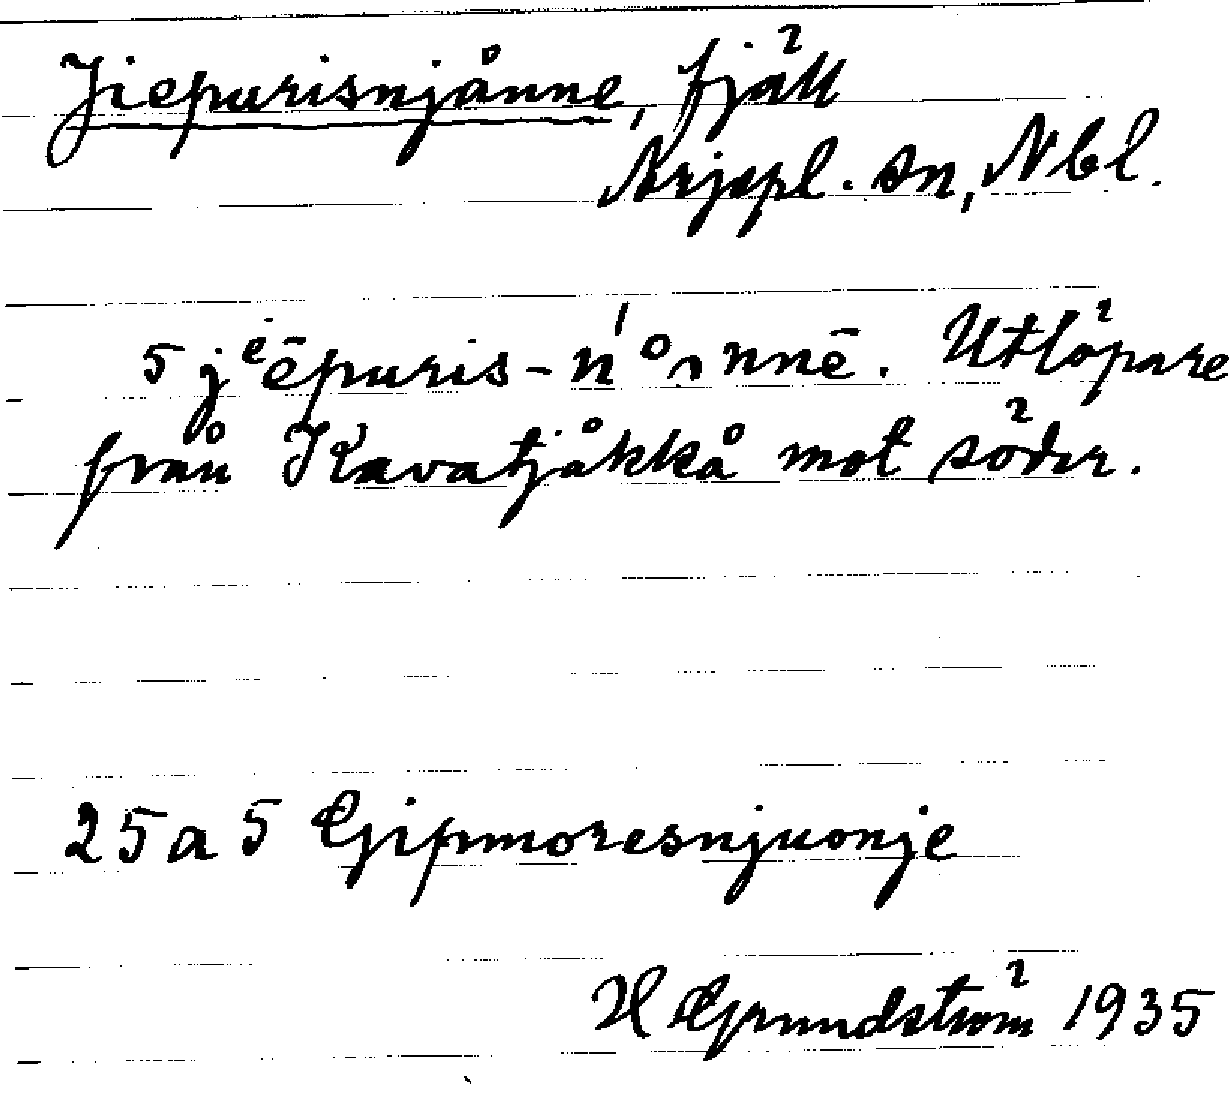 Jiepurisnjånne, fjäll
Arjepl. sn, Nbl.
5 jeēpuris-ń
nnē. Utlöpare
från Kavatjåkkå mot söder.
25 a 5 Gjipmoresnjuonje
H Grundström 1935